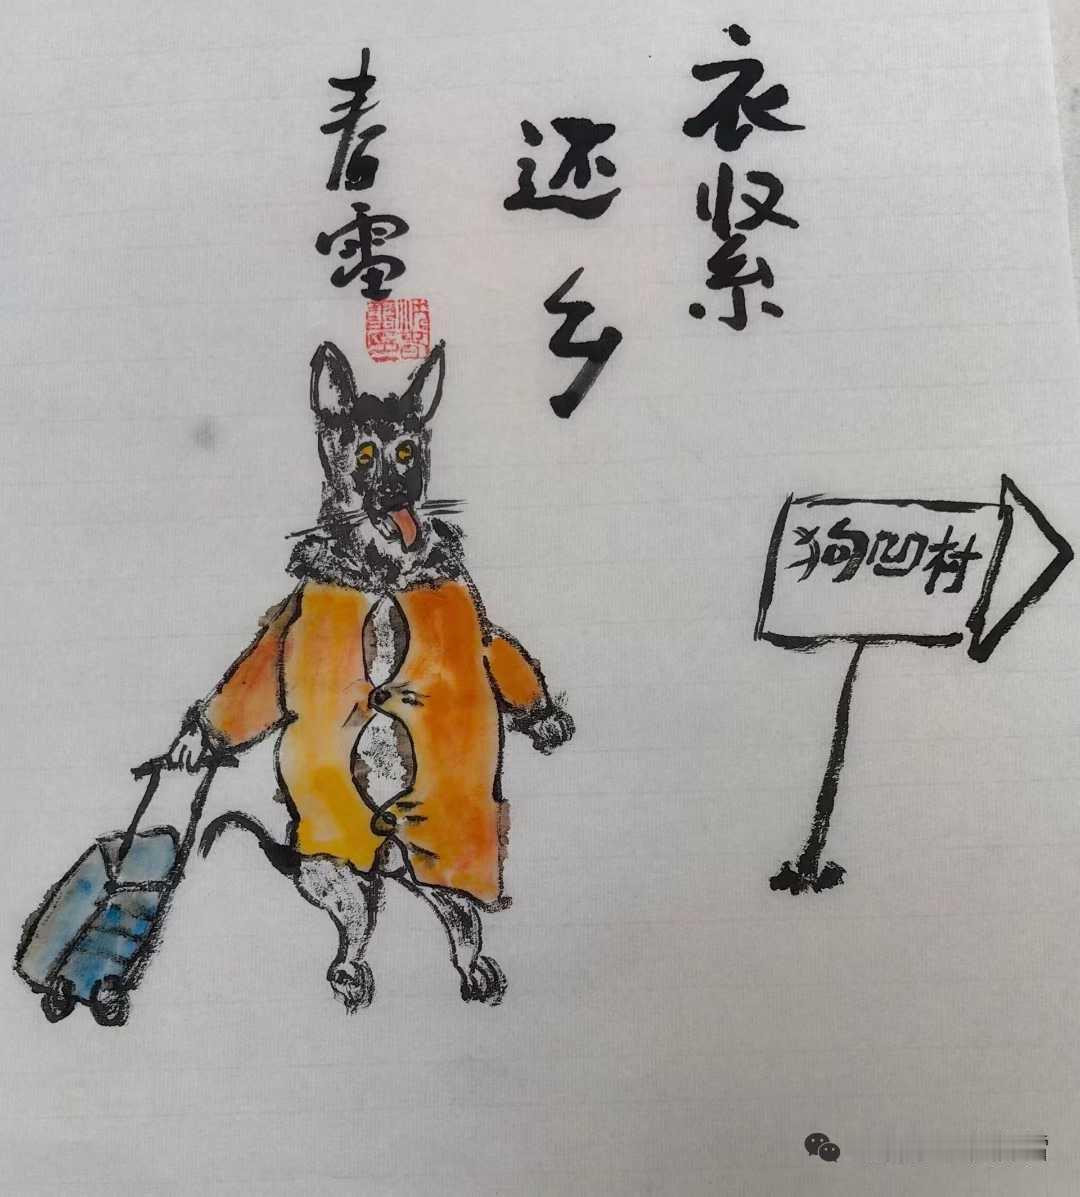 衣紧
还乡
春雪
狗凹村